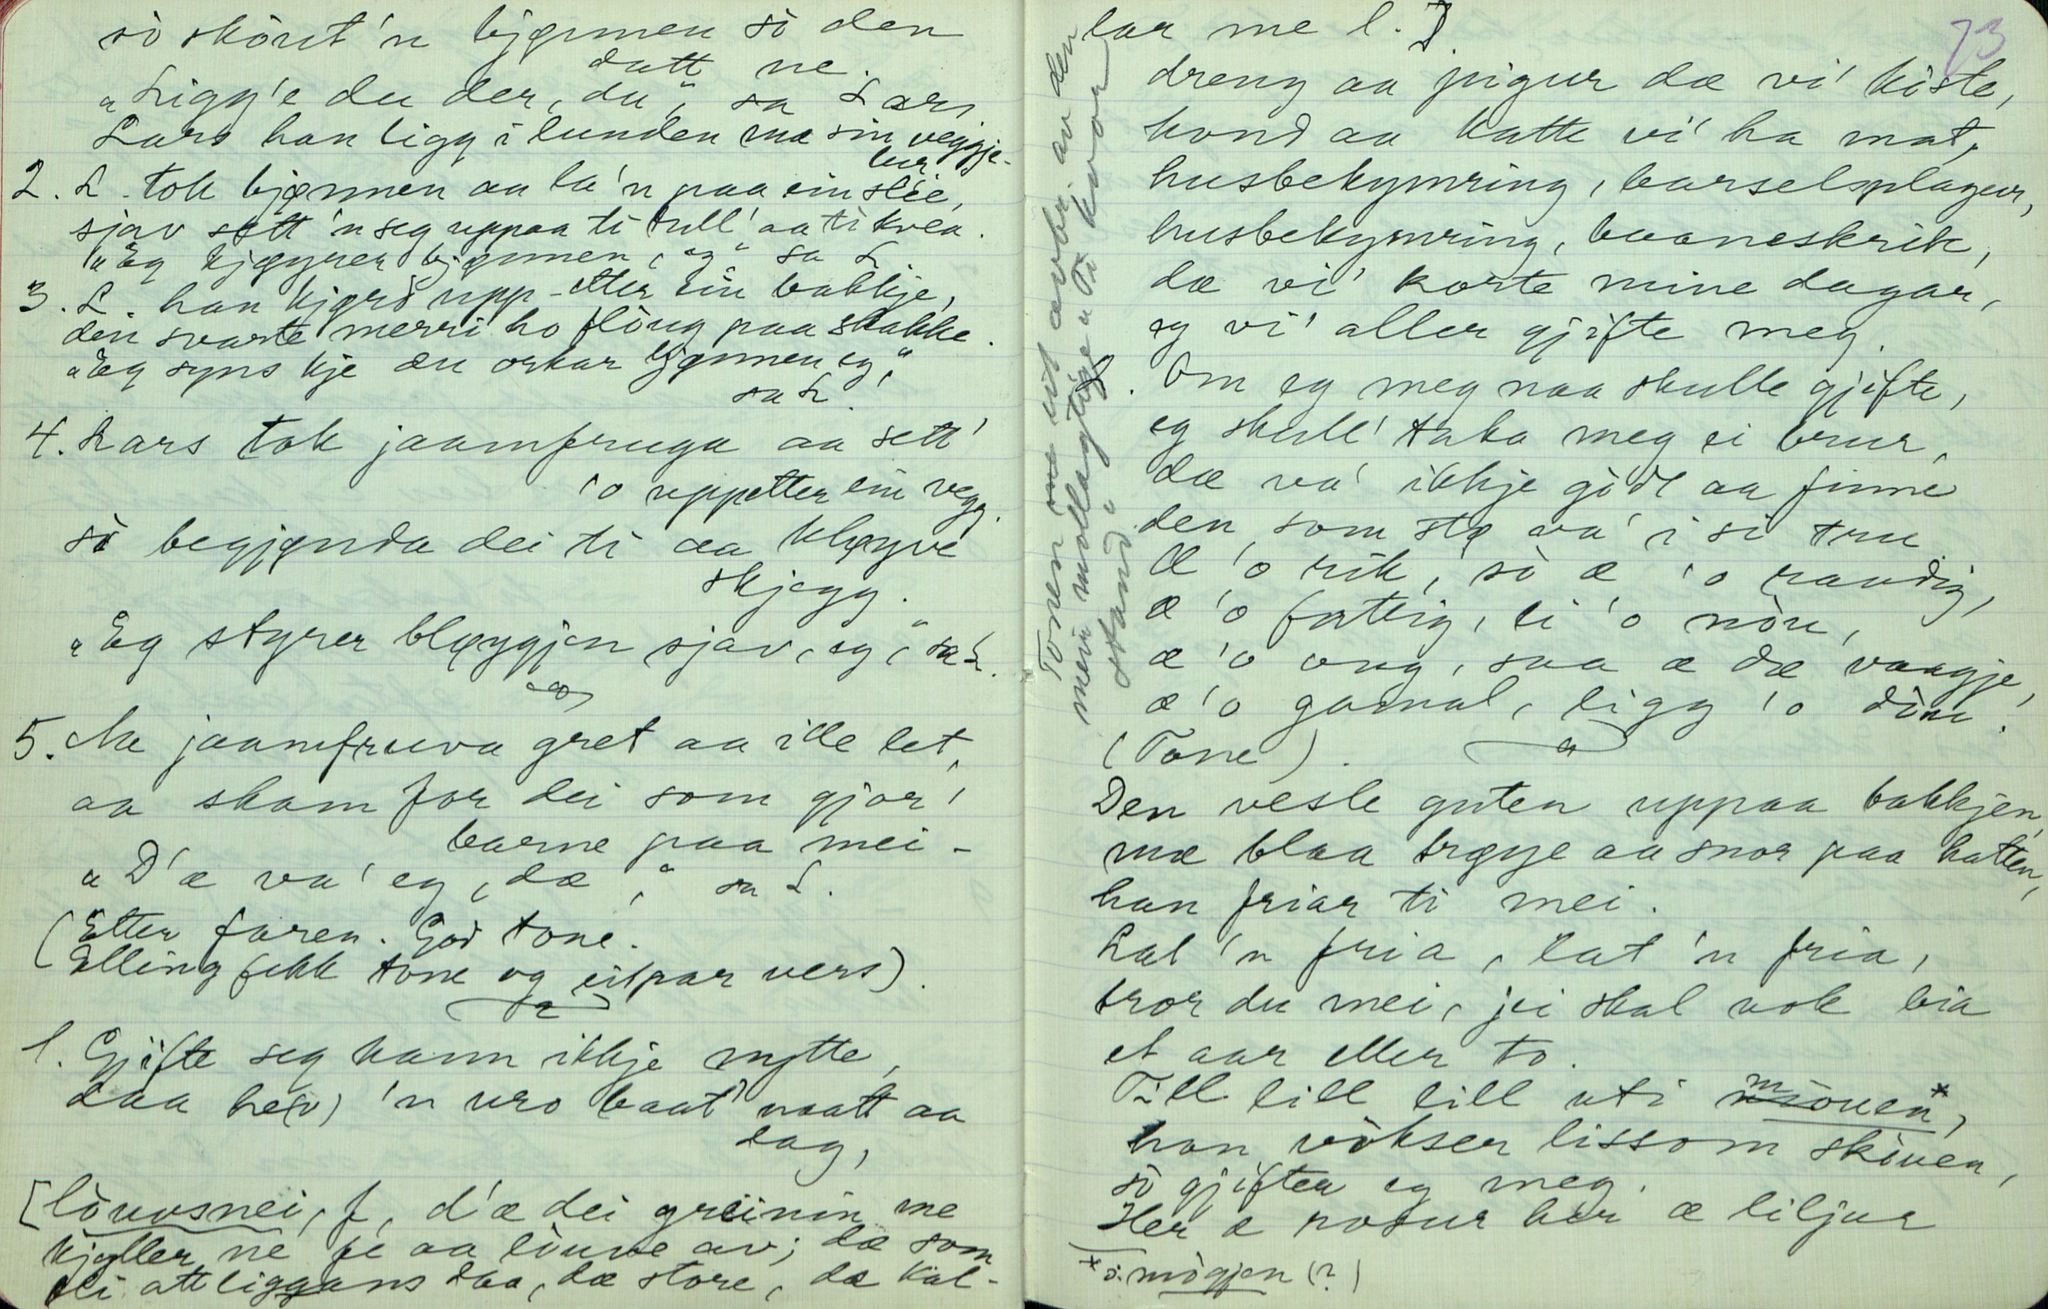 sò skòut'n bjønnen sò den
datt ne.
"Ligg'e du der, du", sa Lars
Lars han ligg i lunden mæ sin veggje-
bur
2. L. tok bjønnen aa la'n paa ein slee,
sjav sett 'n seg uppaa ti tull' aa ti kvea.
"Eg kjøyrer bjønnen, eg" sa L.
3. L. han kjørd upp-etter ein bakkje,
den svarte merri ho flòug paa skakke.
"Eg syns kje du orkar bjønnen eg",
sa L.
4. Lars tok jaamfruga aa sett'
'o uppetter ein vegg.
sò begjønda dei ti aa kløyve
skjegg.
"Eg styrer bløygjen sjav, eg", sa L.
5. Aa jaamfruva gret aa ille let,
aa skam for dei som gjor'
barne paa mei -
"D'æ va' eg, dæ", sa L.
(Etter faren. God tone.
Elling fekk tone og eitpar vers).
1. Gjifte seg kann ikkje nytte,
daa he(v) 'n uro baat' naatt aa
dag,
[lòuvsnei, f, d'æ dei greinin me
kjøller ne fe aa lòuve av; dæ som
bli att liggans daa, dæ store, dæ kal-
lar me l.]
73
dreng aa pigur dæ vi' kiste,
hond aa katte vi' ha mat,
husbekymring, barselsplagur,
husbekymring, baaneskrik,
dæ vi' korte mine dagar,
eg vi' aller gjifte meg.
2. Om eg meg naa skulle gjifte,
eg skull' taka meg ei brur,
dæ va' ikkje gòdt aa finne
den, som stø va' i si tru
Æ 'o rik, sò æ 'o raudig,
æ 'o fattig, li 'o nòu,
æ 'o ong, saa æ dæ vaagje,
æ 'o gamal, ligg 'o dòu!
(Tone).
Tonen me eit avbr. av den
meir mollagtige "Ti kvor
stund"
Den vesle guten uppaa bakkjen,
mæ blaa trøye aa snor paa hatten,
han friar ti mei.
Lat 'n fria, lat 'n fria,
tror du mei, jei skal nok bia
et aar eller to.
Till lill lill uti mòuen*,
han vòkser lissom skòuen,
sò gjifter eg meg.
Her æ rosur her æ liljur
* ɔ: mògjen (?)